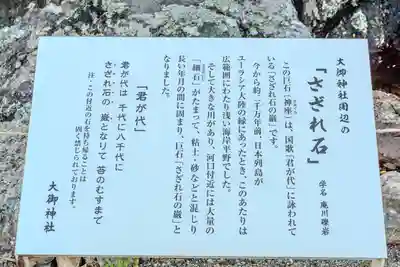 大御神社周辺の
「さざれ石」
学名 庵川礫岩
この巨石（神座）は、国歌「君が代」に詠われて
いる「さざれ石の巌」です。
今から約、二千万年前、日本列島が
ユーラシア大陸の縁にあったとき、このあたりは
広範囲にわたり浅い海岸平野でした。
そして大きな川があり、河口付近には大量の
「細石」がたまって、粘土・砂などと混じり
長い年月の間に固まり、巨石「さざれ石の巌」と
なりました。
「君が代」
君が代は 千代に八千代に
さざれ石の 巌となりて 苔のむすまで
注・この付近の石を持ち帰ることは
固く禁じられております。
大御神社